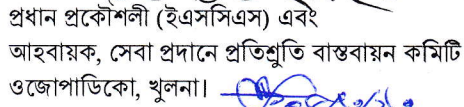 প্রধান প্রকৌশলী (ইএসসিএস) এবং
আহবায়ক, সেবা প্রদানে প্রতিশ্রুতি বাস্তবায়ন কমিটি
ওজোপাডিকো, খুলনা।